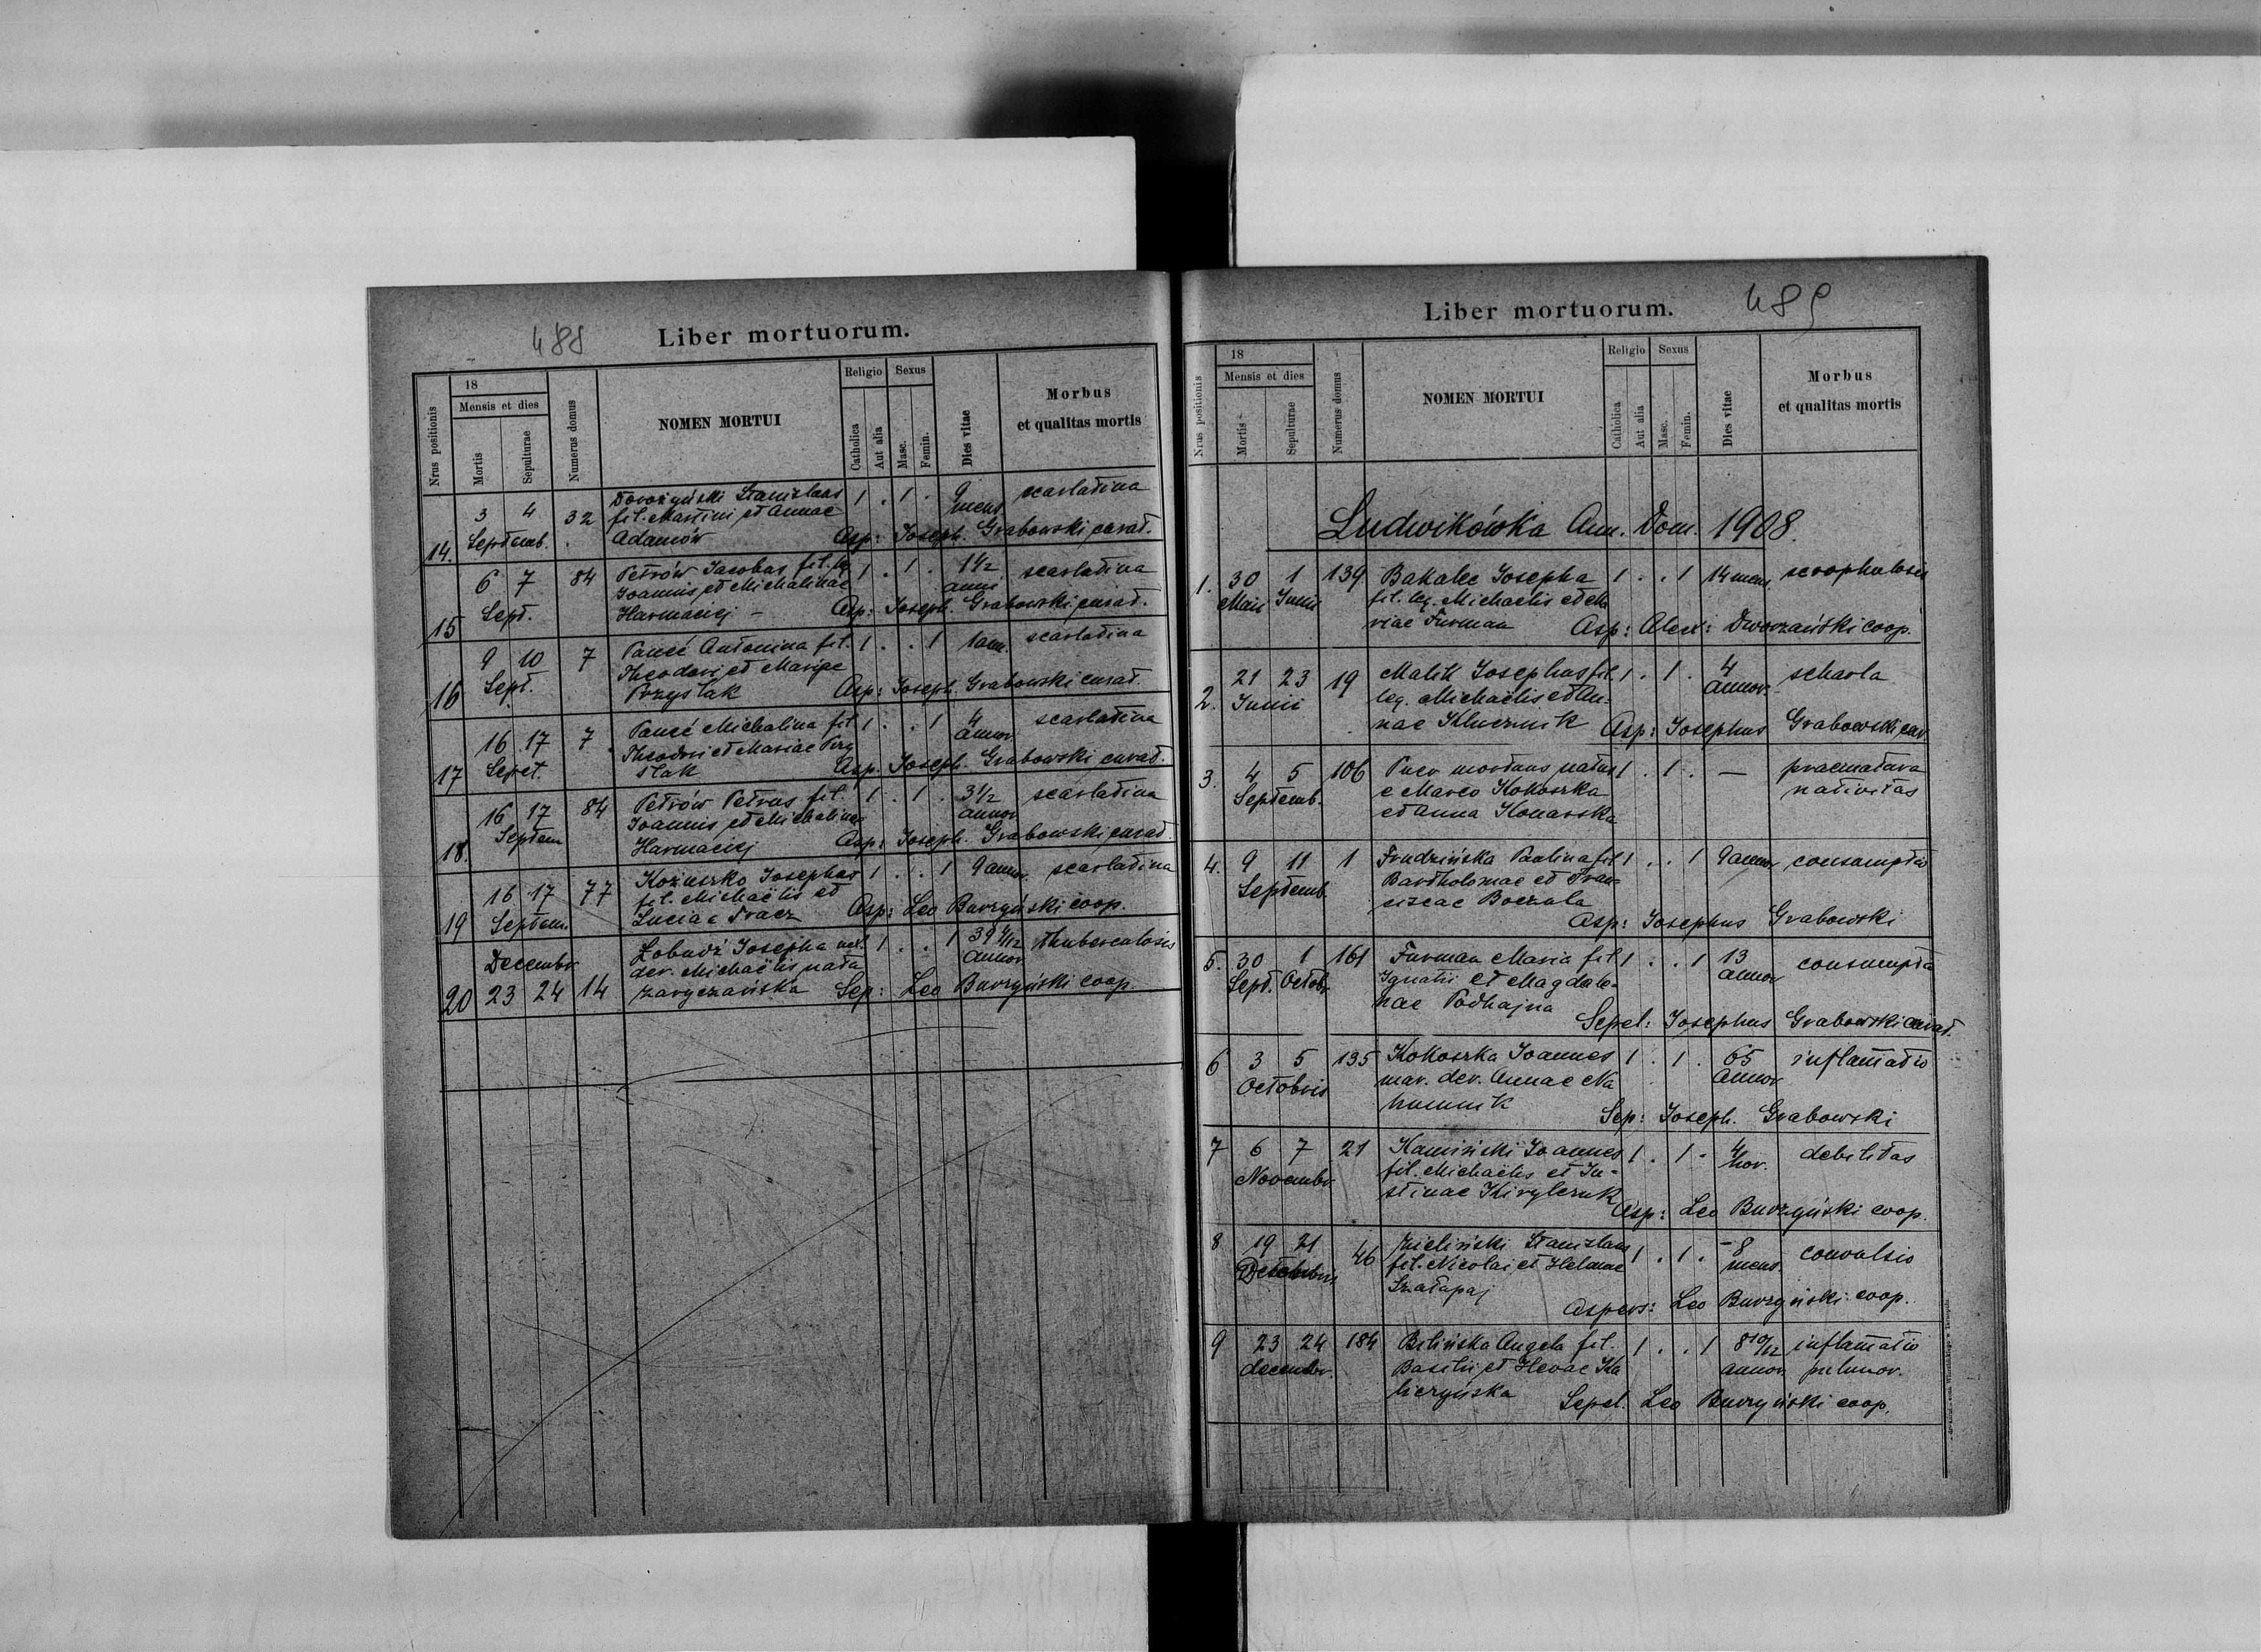 488
Liber mortuorum.
Nrus positionis
18
Mensis et dies
Mortis
Sepulturae
Numerus domus
NOMEN MORTUI
Religio
Catholica
Aut alia
Sexus
Masc.
Femin.
Dies vitae
Morbus
et qualitas mortis
14. 3 4 32 Dorożyński Stanislaus 1 . 1 . 9 scarlatina
fil. Martini et Annae mens
Septemb. Adamów Asp: Joseph. Grabowski curat.
15 6 7 84 Petrów Jacobus fil. leg 1 . 1 . 1 1/2 scarlatina
Joannis et Michalinae anni
Sept. Harmaciej - Asp: Joseph. Grabowski curat.
16 9 10 7 Pańcć Antonina fil. 1 . . 1 1 ann. scarlatina
Sept. Theodori et Mariae
Przystak Asp: Joseph. Grabowski curat.
17 16 17 7 Pańcć Michalina fil. 1 . . 1 4 scarlatina
Sept. Theodori et Mariae Przy annor
stak Asp. Joseph. Grabowski curat.
18. 16 17 84 Petrów Petrus fil. 1 . 1 . 3 1/2 scarlatina
Septem Joannis et Michalinae annor
Harmaciej Asp: Joseph. Grabowski curat
19 16 17 77 Kożuszko Josephus 1 . . 1 9 annor. scarlatina
fil. Michaëlis et
Septem. Luciae Tracz Asp: Leo Burzyński coop.
Decembr Łobudź Josepha ux. 1 . . 1 39 4/12 thuberculosis
der. Michaëlis nata annor
20 23 24 14 Zaryczańska Sep: Leo Burzyński coop.
Liber mortuorum.
489
Nrus positionis
18
Mensis et dies
Mortis
Sepulturae
Numerus domus
NOMEN MORTUI
Religio
Catholica
Aut alia
Sexus
Masc.
Femin.
Dies vitae
Morbus
et qualitas mortis
Ludwikówka Ann. Dom. 1908.
1. 30 1 139 Bakalec Josepha 1 . . 1 14 mens. scrophulosis
Maii Junii fil. leg. Michaelis et Ma
riae Furman Asp: Alex: Dworzański coop.
2. 21 23 19 Malik Josephus fil. 1 . 1 . 4 scharla
Junii leg. Michaëlis et An= annor.
nae Klucznik Asp: Josephus Grabowski cur
3. 4 5 106 Puer mortuus natus 1 . 1 . — praematura
Septemb. e Marco Kokoszka nativitas
et Anna Konarska
4. 9 11 1 Frudzińska Paulina fil 1 . . 1 9 annor consumptio
Septemb Bartholomae et Fran=
ciscae Boczula
Asp: Josephus Grabowski
5. 30 1 161 Furman Maria fil 1 . . 1 13 consumptia
Sept. Octobr. Ignatii et Magdale= annor
nae Podhajna
Sepel: Josephus Grabowski curat.
6 3 5 135 Kokoszka Joannes 1 . 1 . 65 inflamatio
Octobris mar. der. Annae Na annor
humnik
Sep: Joseph. Grabowski
7 6 7 21 Kamiński Joannes 1 . 1 . 4 debilitas
Novembr fil. Michaëlis et Ju= hor.
stinae Kirylczuk
Asp: Leo Burzyński coop.
8 19 21 46 Zieliński Stanislaus 1 . 1 . 8 convulsio
fil. Nicolai et Helenae mens.
Szatapaj
Aspers: Leo Burzyński coop.
9 23 24 184 Bilińska Angela fil. 1 . . 1 8 10/12 inflamatio
decembr. Basilii et Hevae Ka annor. pulmor.
liczyńska
Sepel. Leo Burzyński coop.